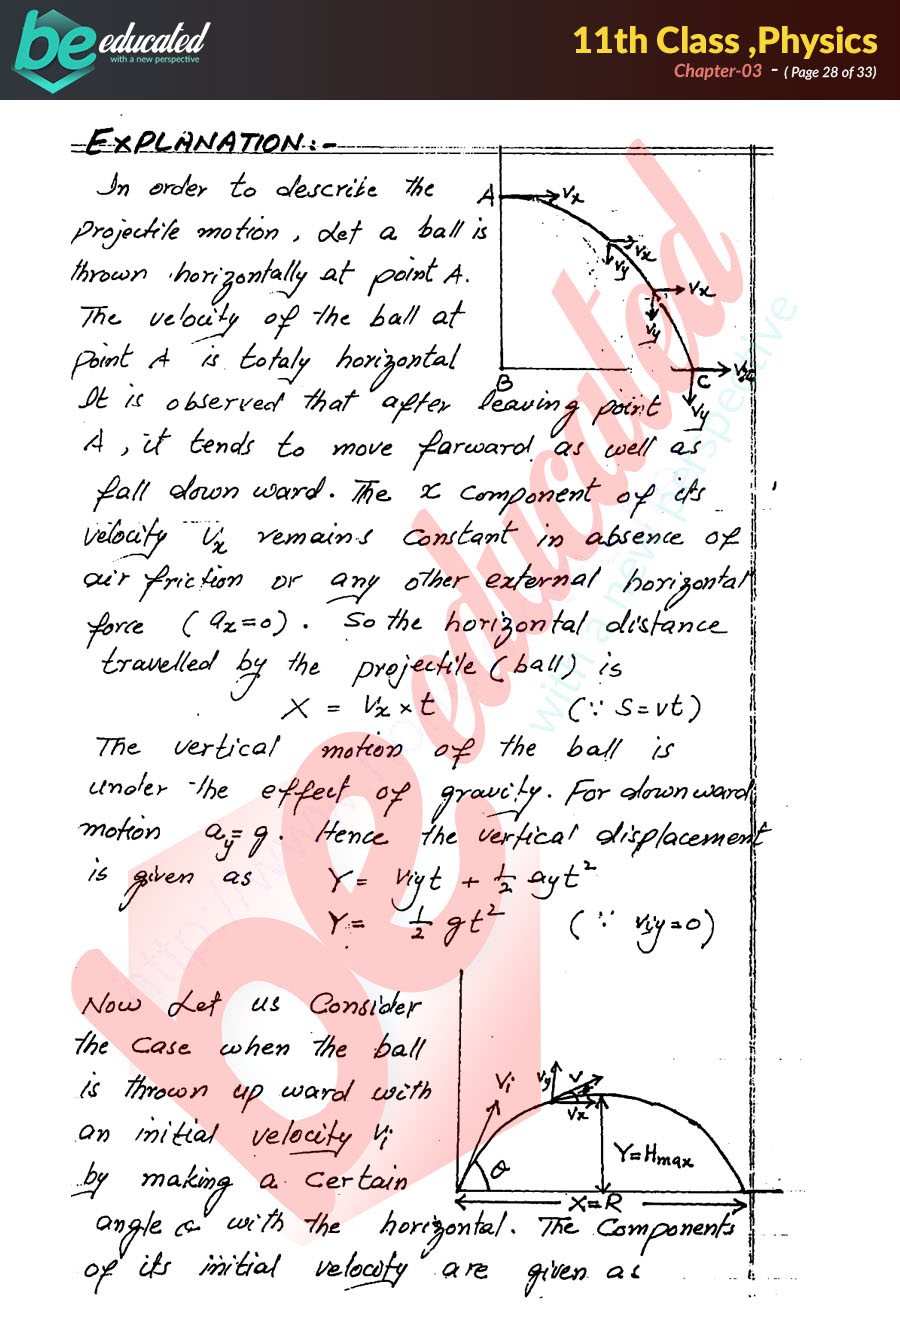 be educated
with a new perspective
11th Class ,Physics
Chapter-03 - ( Page 28 of 33)
EXPLANATION:-
In order to describe the
projectile motion, Let a ball is
thrown horizontally at point A.
The velocity of the ball at
point A is totaly horizontal
It is observed that after leaving point
A, it tends to move farward as well as
fall down ward. The x component of its
velocity Vx remains constant in absence of
air friction or any other external horizontal
force (ax=0). So the horizontal distance
travelled by the projectile (ball) is
X = Vx × t (∵ S=vt)
The vertical motion of the ball is
under the effect of gravity. For downward
motion ay=g. Hence the vertical displacement
is given as Y= Viyt + 1/2 ayt²
Y= 1/2 gt² (∵ Viy=0)
A
Vx
Vx
Vy
Vx
Vy
B
C
Vx
Vy
Now Let us Consider
the case when the ball
is thrown up ward with
an initial velocity Vi
by making a certain
angle with the horizontal. The Components
of its initial velocity are given as
Vi
Vy
V
Vx
θ
Y=Hmax
X=R
be educated
with a new perspective